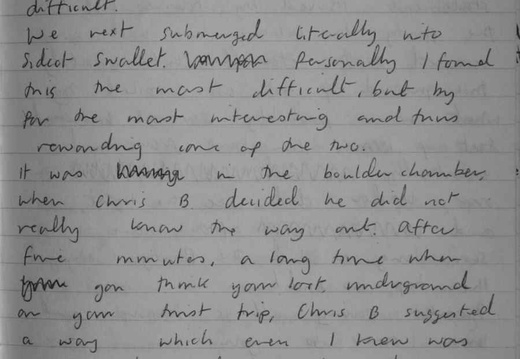 difficult.
We next submerged literally into
Sidcot Swallet. Personally I found
this the most difficult, but by
far the most interesting and thus
rewarding cave of the two.
It was in the boulder chamber,
when Chris B decided he did not
really know the way out. After
five minutes, a long time when
you think your lost, underground
on your first trip, Chris B suggested
a way which even I knew was